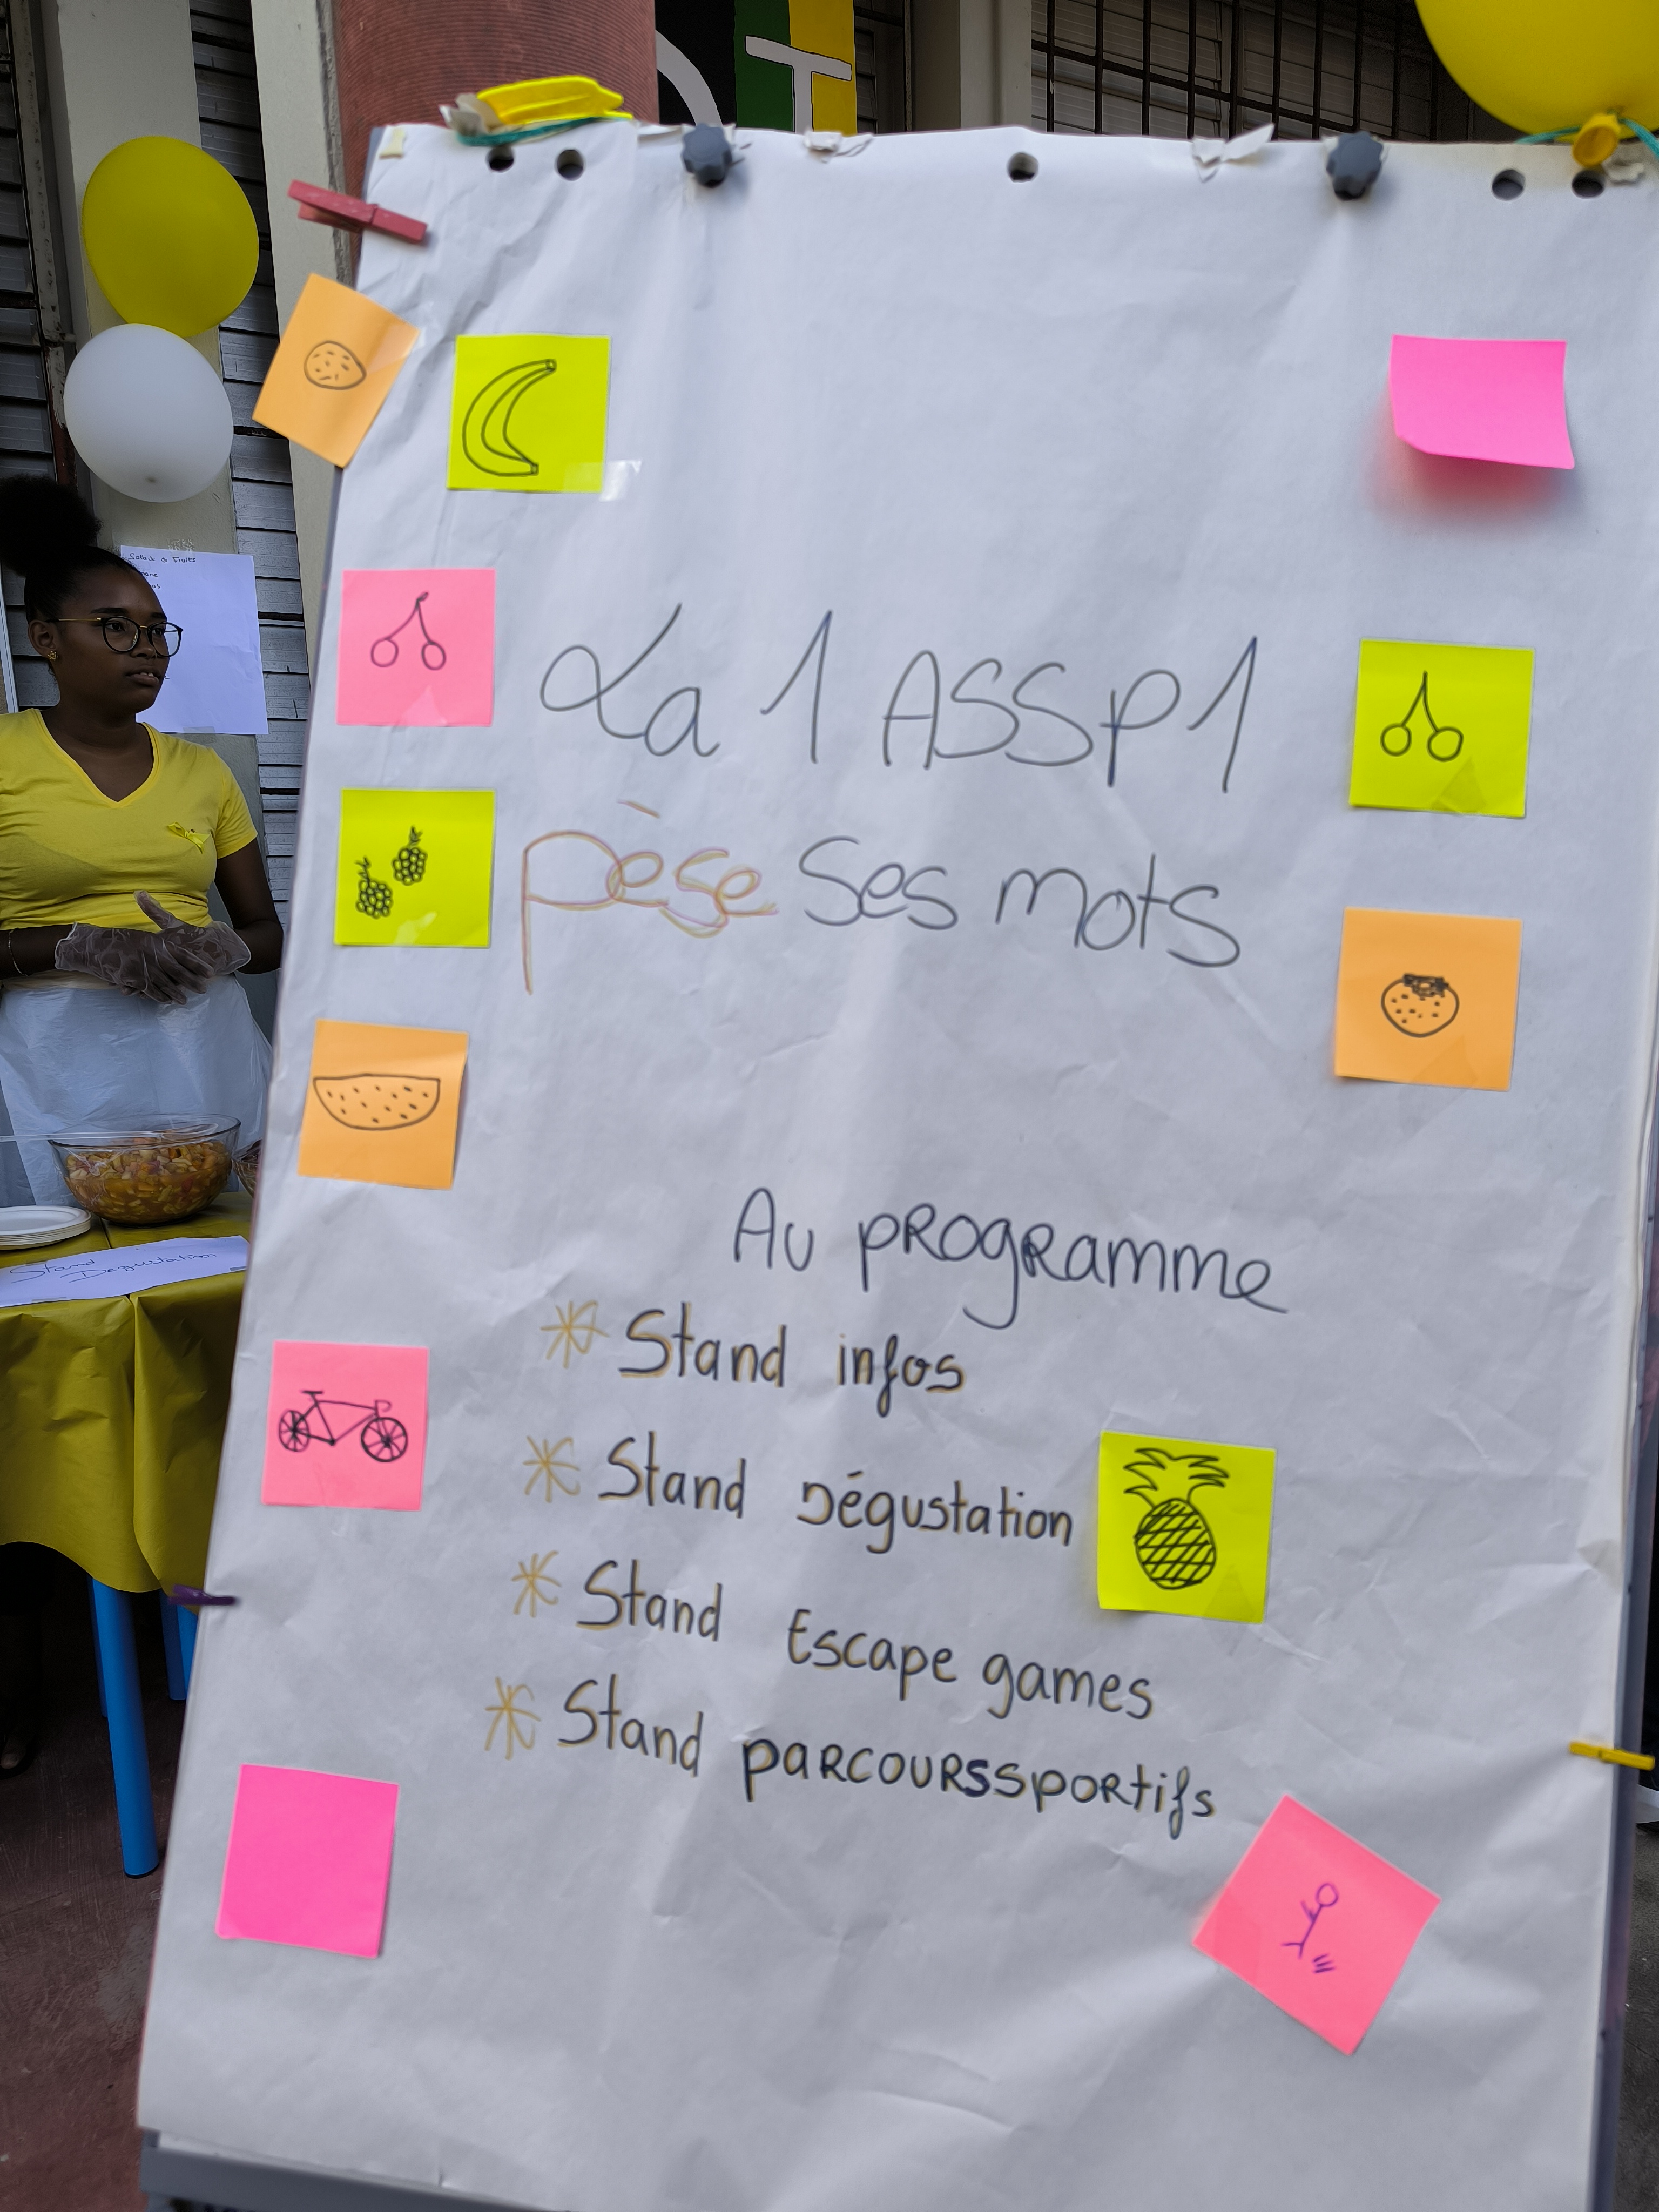 La 1 ASSP1
pèse ses mots
Au programme
* Stand infos
* Stand Dégustation
* Stand Escape games
* Stand parcourssportifs
Salade de Fruits
Stand
Degustation